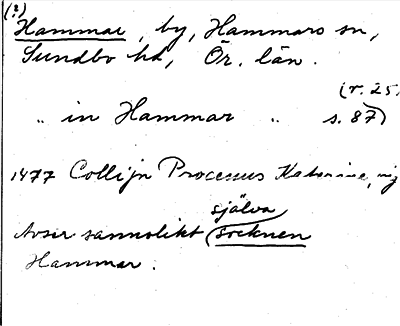 (?)
Hammar, by, Hammars sn,
Sundbo hd, Ör. län.
(r. 25,
„ in Hammar „ s. 87)
1477 Collijn Processus Katerine,
själva
Avser sannolikt socknen
Hammar.